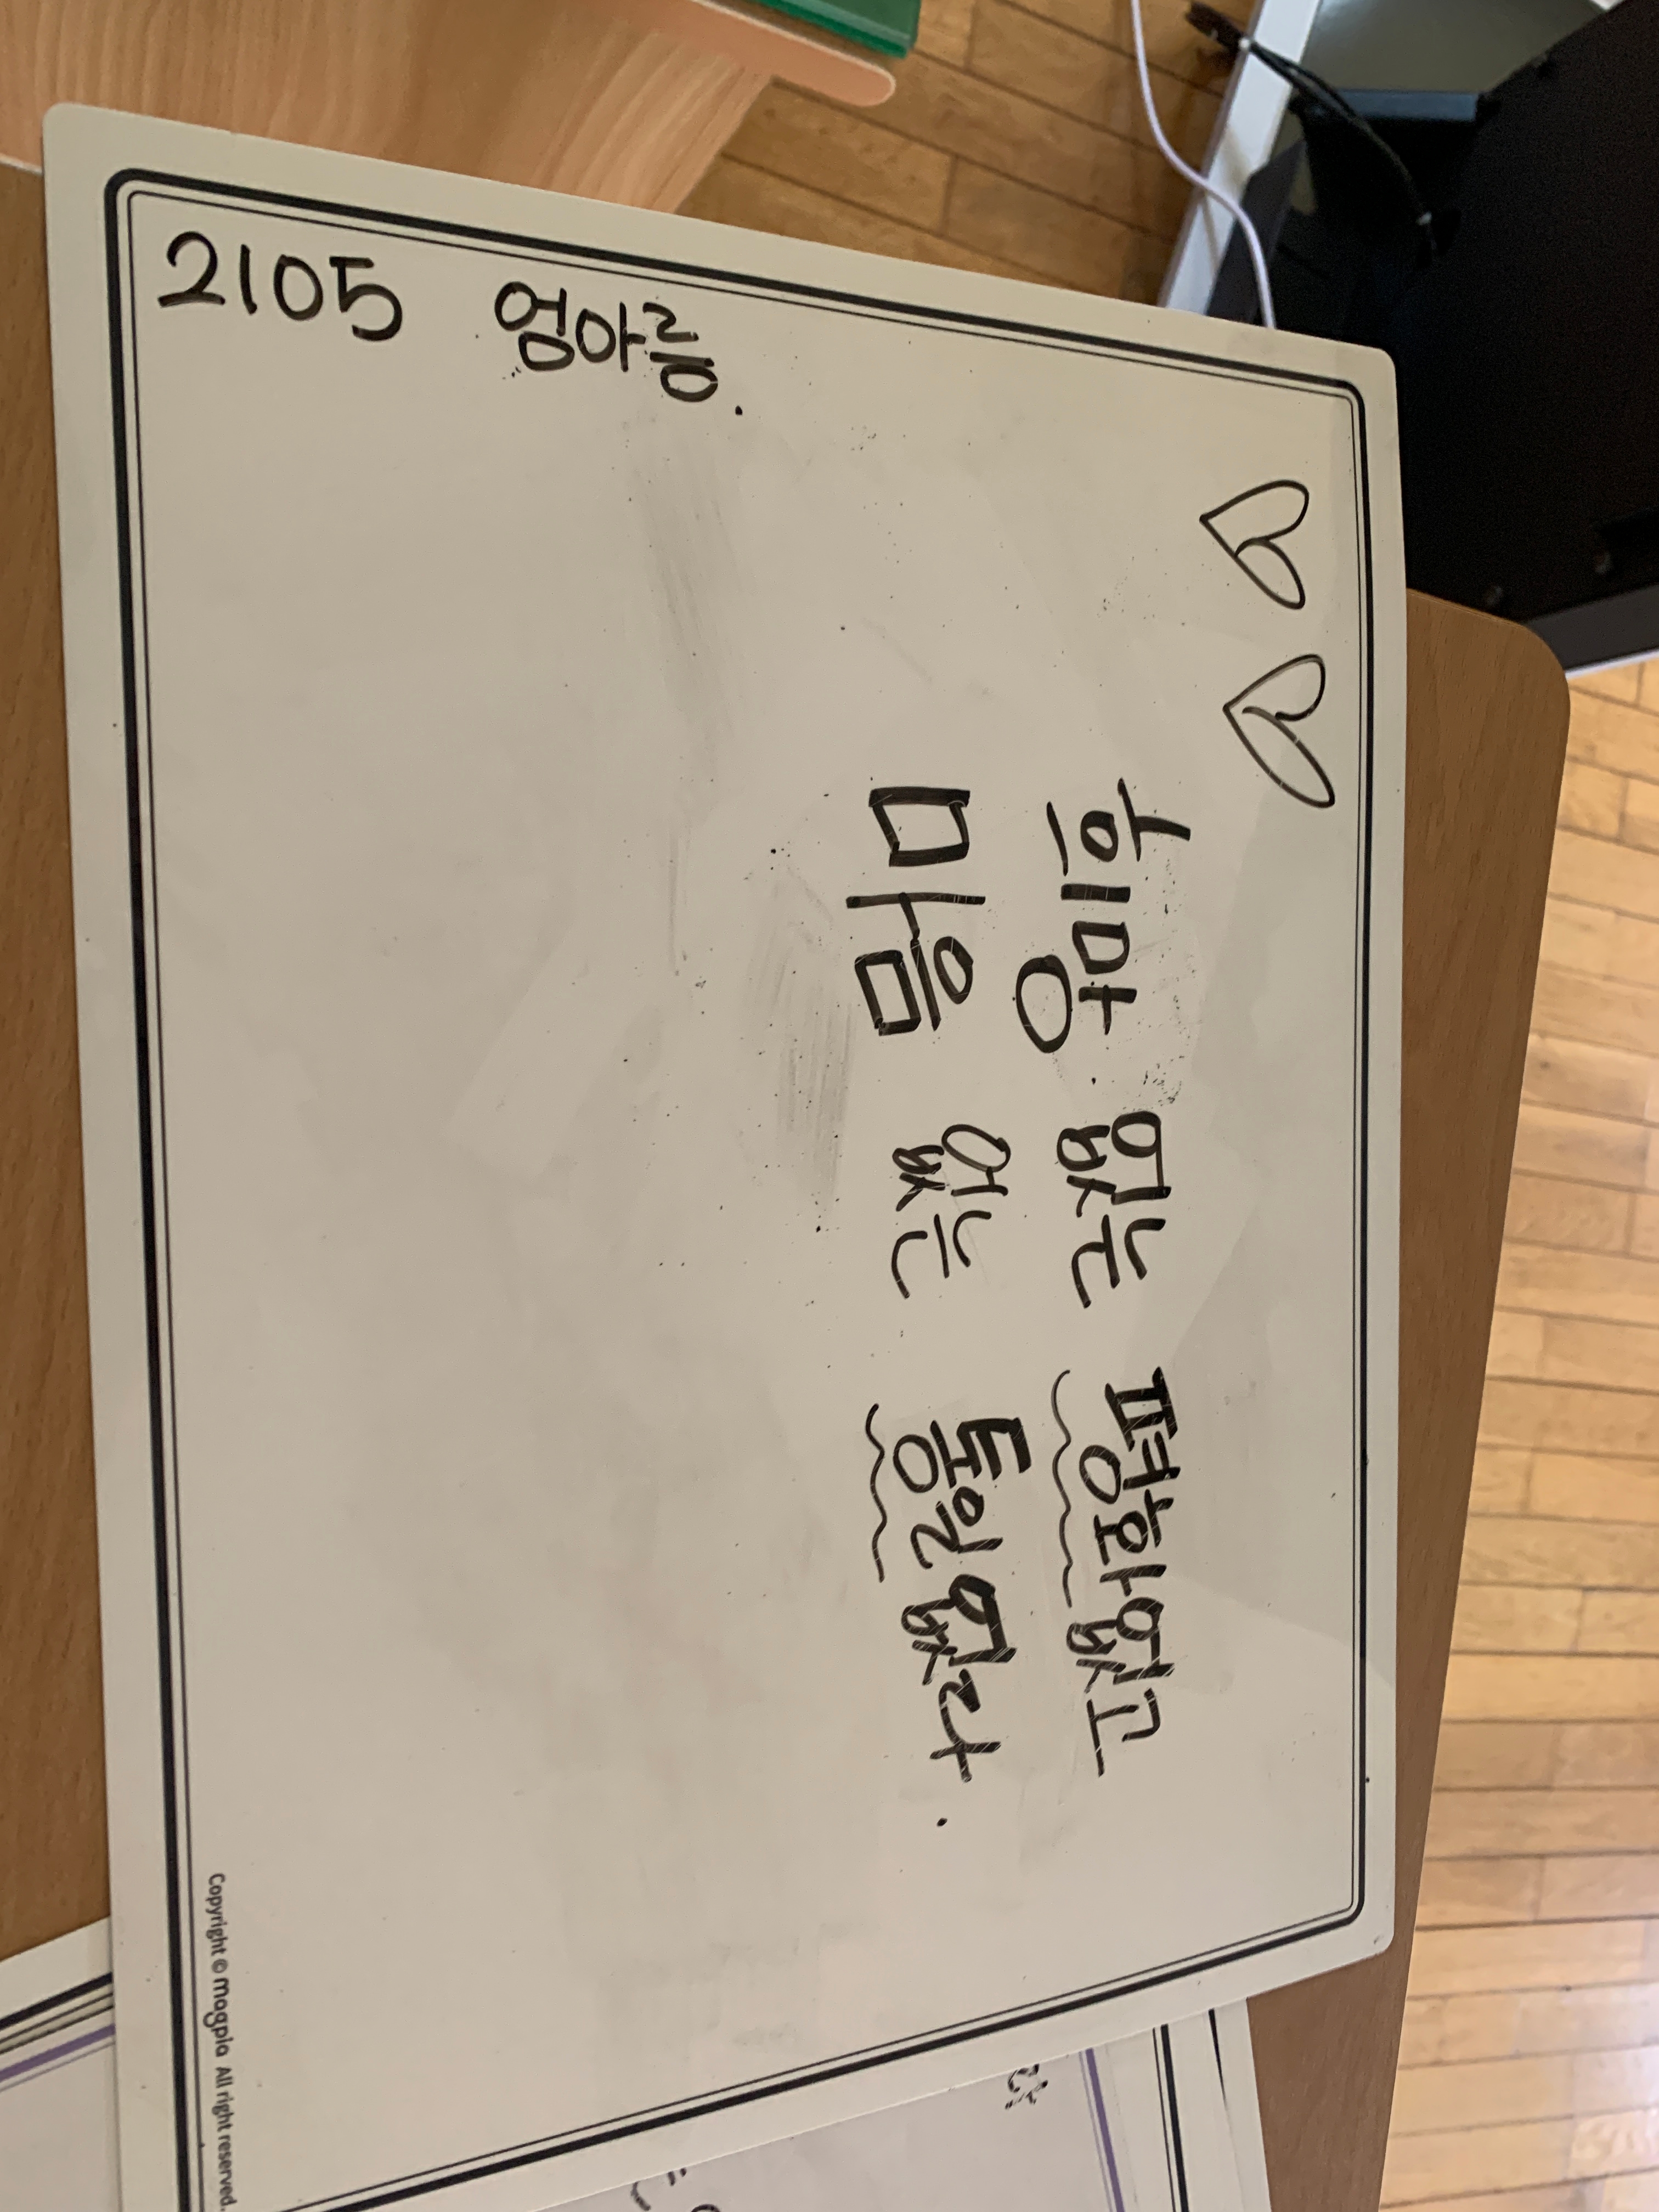 희망 없는 평화 없고
마음 없는 통일 없다.
2105 엄아름.
Copyright © magpia All right reserved.